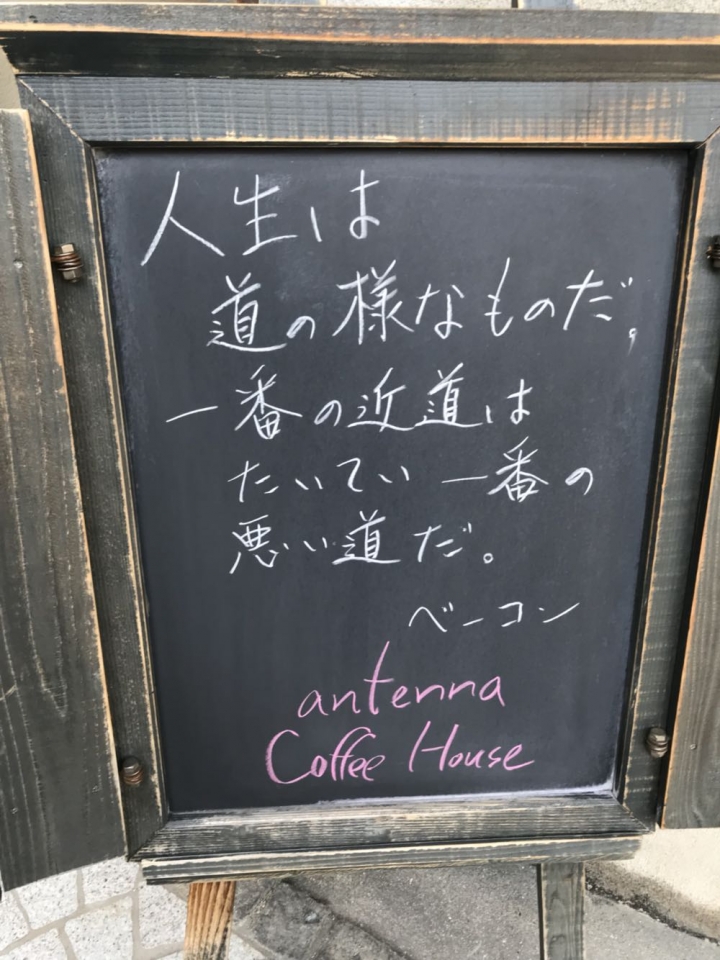 人生は
道の様なものだ。
一番の近道は
たいてい一番の
悪い道だ。
ベーコン
antenna
Coffee House